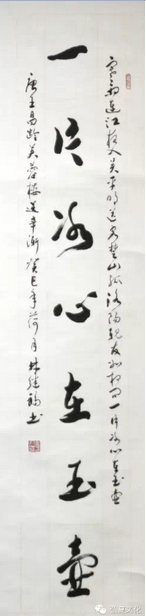 寒雨连江夜入吴平明送客楚山孤洛阳亲友如相问一片冰心在玉壶
一片冰心在玉壶
唐王昌龄芙蓉楼送辛渐癸巳年荷月林德福书